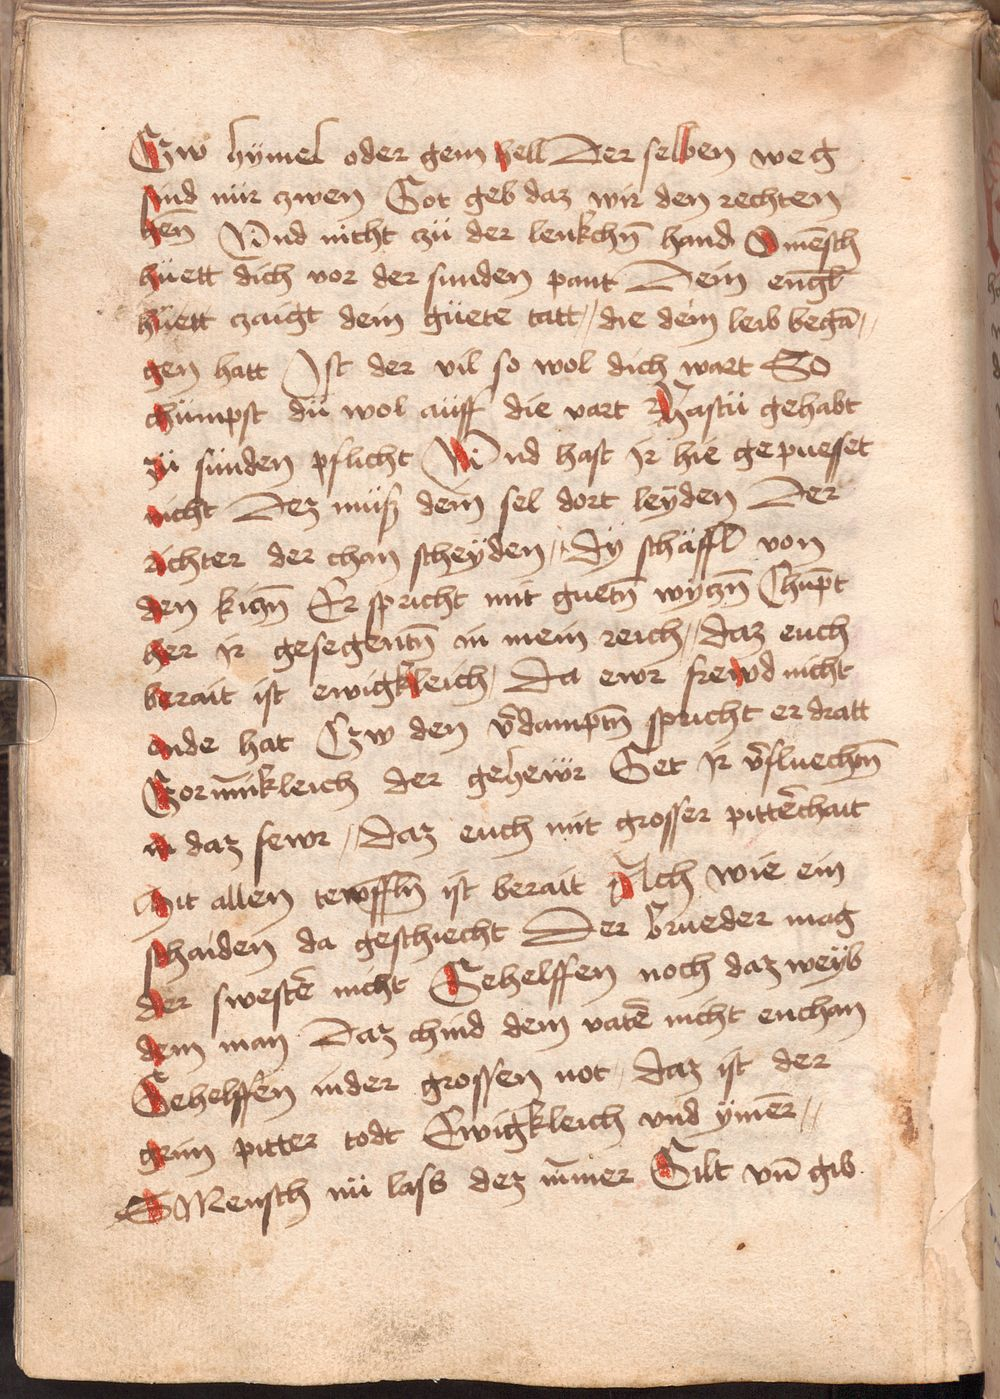 Czw hÿmel oder gem hell Der selben weg
sind nür zwen Got geb daz wir den rechten
hen Vnd nicht zü der lenkchn̄ hand O mēsch
hüett dich vor der sunden pant Dein engl̄
hüett zaigt dem güete tatt // die dem leib begā //
gen hatt Ist der vil so wol dich wart So
chümpst dü wol aüff die vart Hastü gehabt
zü sünden pflicht Vnd hast ir hie gepuesset
nicht Dez müß dein sel dort leÿden Der
richter der chan scheÿden // Dÿ schäffl von
den kiczn̄ Er spricht mit guetn̄ wÿczn̄ Chūpt
her ir gesegentn̄ in mein reich // daz euch
berait ist ewigkleich / Da ewr frewd nicht
ende hat Czw den v̄damptn̄ spricht er dratt
Zorn̄ikleich der gehewr Get ir v̄fluechtn̄
in daz fewr / Daz euch mit grosser pittērchait
Mit allen tewffln̄ ist berait Ach wie ein
schaiden da geschiecht Der brueder mag
der swestē nicht Gehelffen noch daz weÿb
dem man Daz chind dem vatē nicht enchan
Gehelffen in der grossen not / daz ist der
grim pitter todt Ewigkleich vnd ÿmēr //
O Mensch nü lasb dez im̄er Gilt vn̄ gib